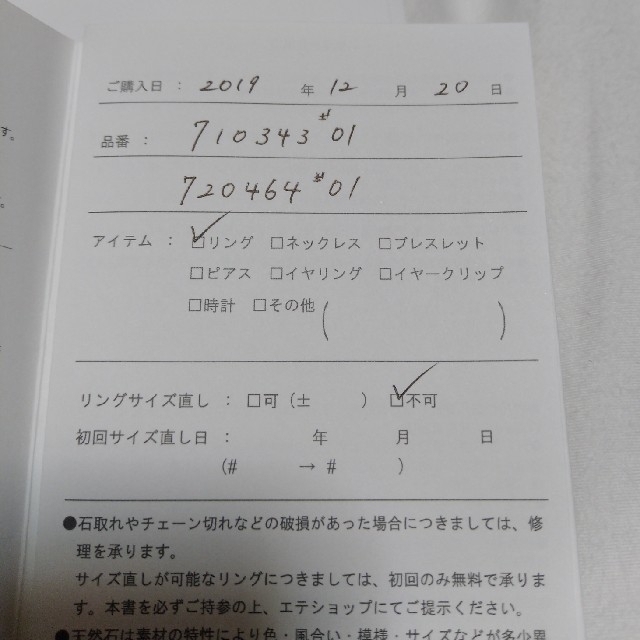 ご購入日 : 2019 年 12 月 20 日
品番 : 710343 #01
720464 #01
アイテム : □リング □ネックレス □ブレスレット
□ピアス □イヤリング □イヤークリップ
□時計 □その他( )
リングサイズ直し : □可(± ) □不可
初回サイズ直し日 : 年 月 日
(# → # )
●石取れやチェーン切れなどの破損があった場合につきましては、修
理を承ります。
サイズ直しが可能なリングにつきましては、初回のみ無料で承りま
す。本書を必ずご持参の上、エテショップにてご提示ください。
●天然石は素材の特性により色・風合い・模様・サイズなどが多少異
す。